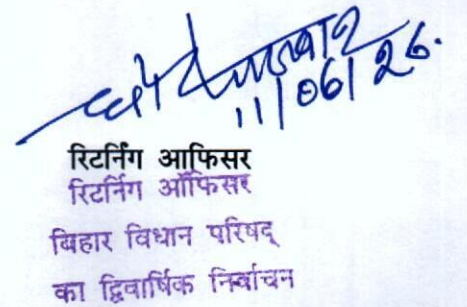 11/06/26.
रिटर्निंग आफिसर
रिटर्निंग ऑफिसर
बिहार विधान परिषद्
का द्विवार्षिक निर्वाचन